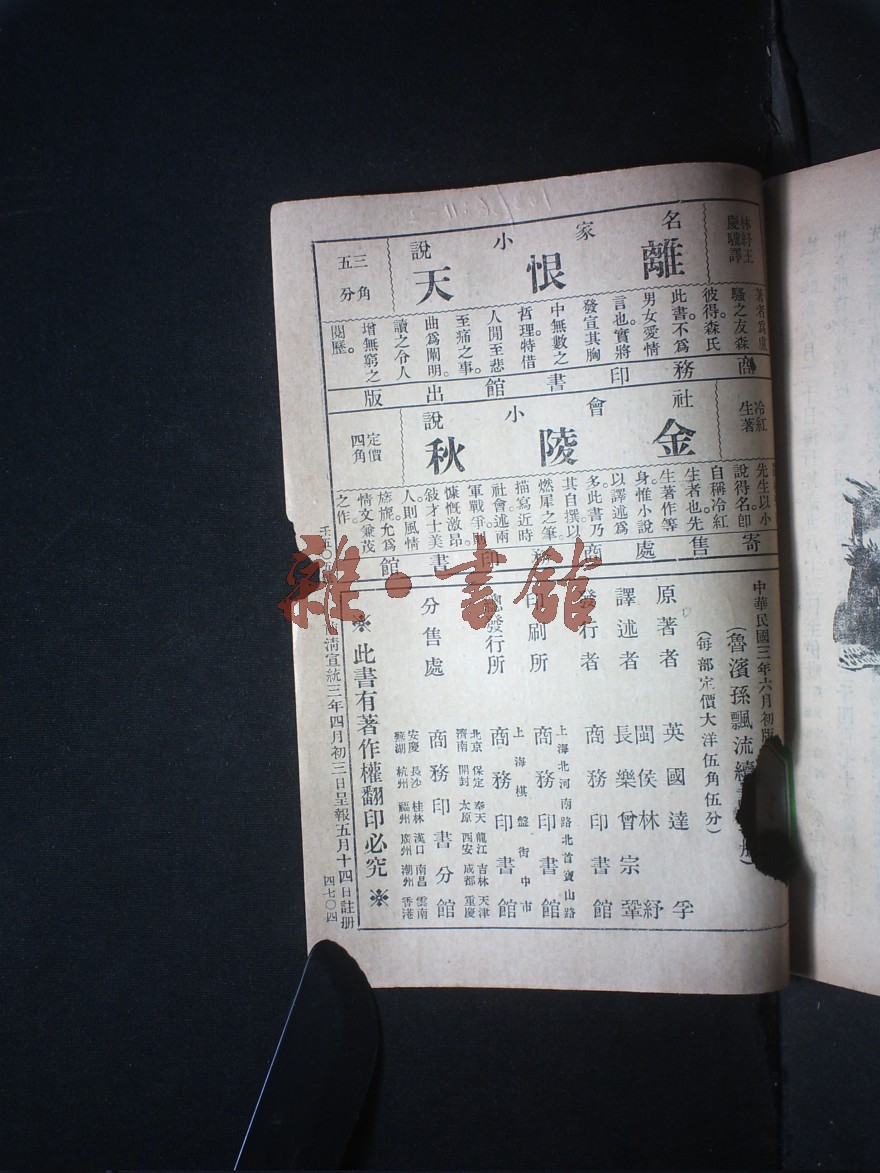 林紓王
慶驥譯
名家小說
離恨天
三角
五分
著者爲盧
騷之友森
彼得。森氏
此書不爲
男女愛情
言也。實將
發宣其胸
中無數之
哲理。特借
人間至悲
至痛之事。
曲爲闡明。
讀之令人
增無窮之
閱歷。
商務印書館出版
冷紅
生著
社會小說
金陵秋
定價
四角
先生以小
說得名。卽
自稱冷紅
生者也。先
生著作等
身。惟小說
以譯述爲
多。此書乃
其自撰。以
燃犀之筆。
描寫近時
社會。述兩
軍戰爭。則
慷慨激昂。
敍才士美
人。則風情
旖旎。允爲
情文兼茂
之作。
寄售處商務印書館
中華民國三年六月初版
(魯濱孫飄流續
(每部定價大洋伍角伍分)
原著者 英國達孚
譯述者 閩侯林紓
長樂曾宗鞏
發行者 商務印書館
印刷所 上海北河南路北首寶山路
商務印書館
總發行所 上海棋盤街中市
商務印書館
分售處 北京 保定 奉天 龍江 吉林 天津
濟南 開封 太原 西安 成都 重慶
商務印書分館
安慶 長沙 桂林 漢口 南昌 雲南
蕪湖 杭州 福州 廣州 潮州 香港
※此書有著作權翻印必究※
前淸宣統三年四月初三日呈報五月十四日註册
四七〇四
雜·書館